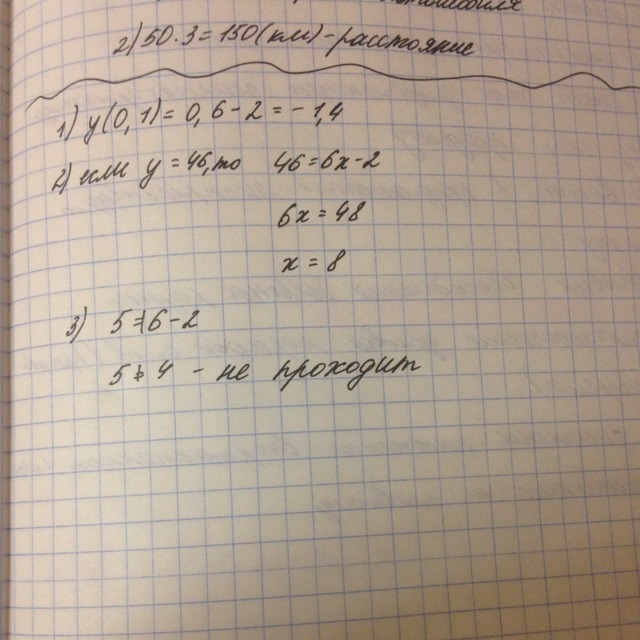 2) 50·3=150(км)-расстояние
1) y(0,1)=0,6-2=-1,4
2) если y=46, то 46=6x-2
6x=48
x=8
3) 5≠6-2
5≠4 - не проходит